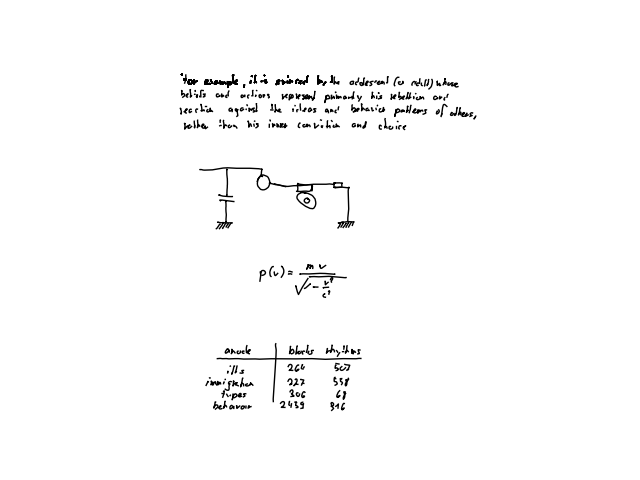 For example, it is evinced by the adolescent (or adult) whose
beliefs and actions represent primarily his rebellion and
reaction against the ideas and behavior patterns of others,
rather than his inner conviction and choice
p(v) = m v / √(1 - v² / c²)
anode blocks rhythms
ills 264 507
immigration 227 538
types 306 68
behavior 2439 816